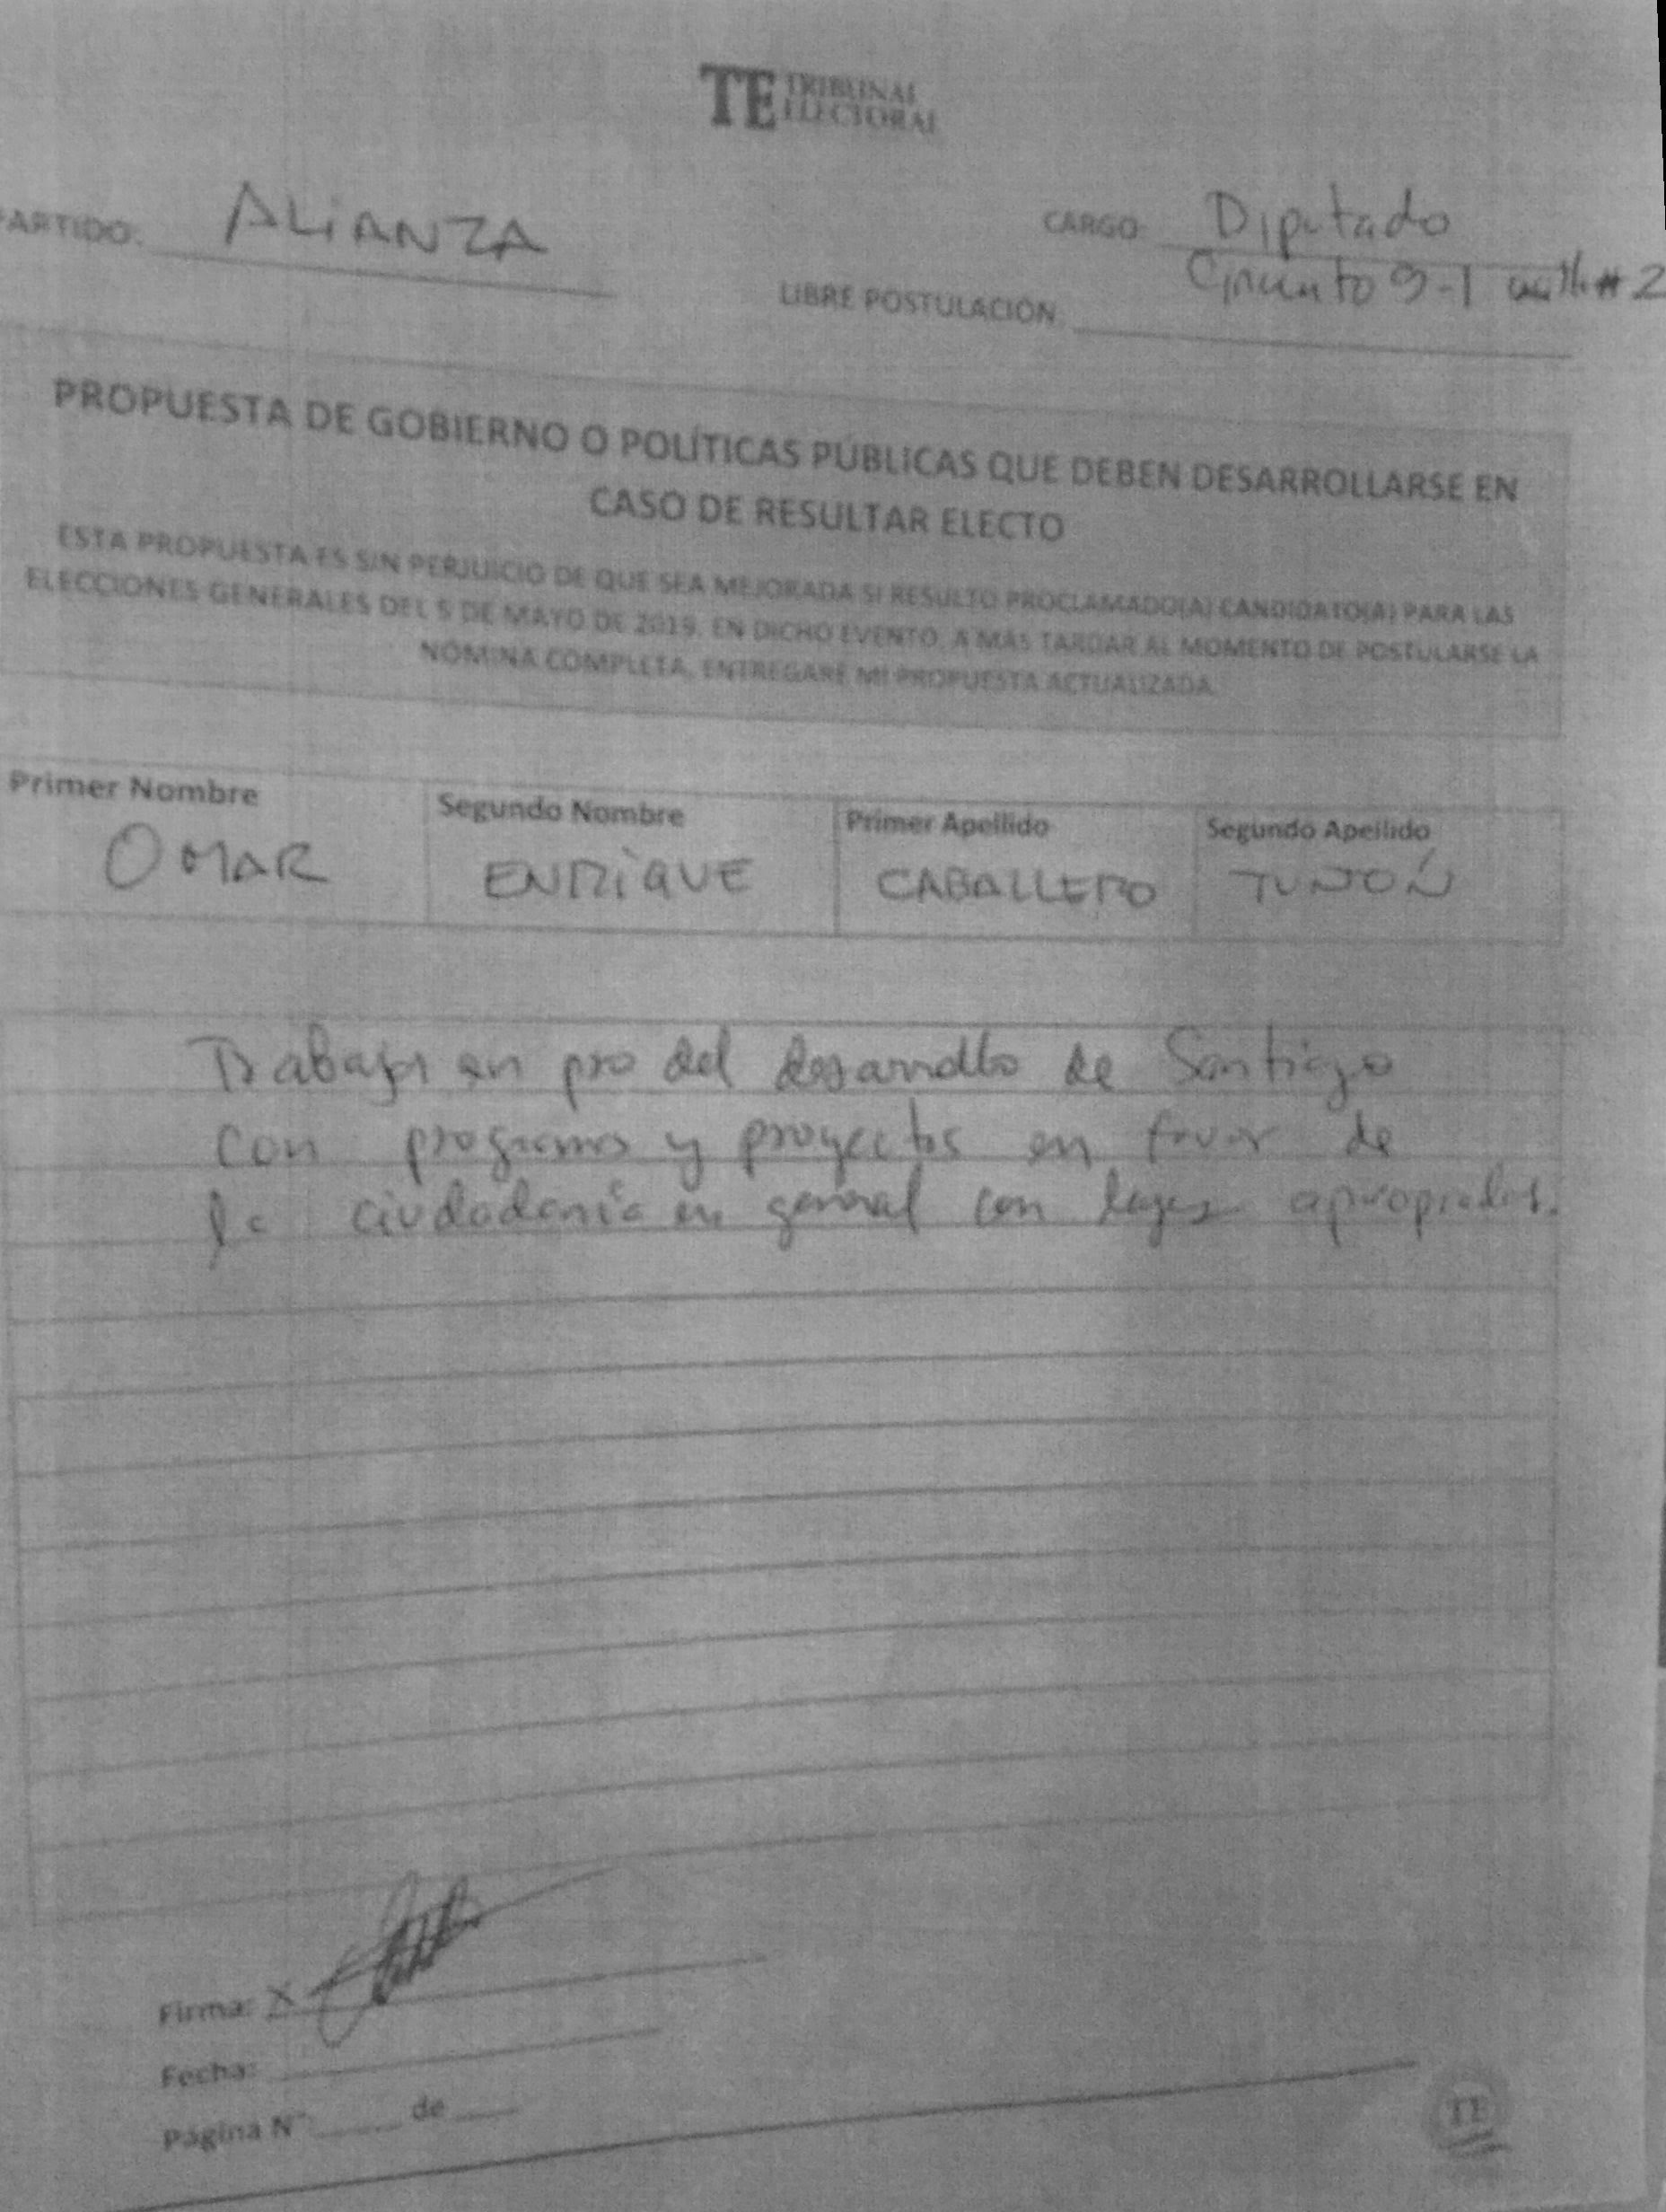 TE TRIBUNAL
ELECTORAL
PARTIDO: ALIANZA
CARGO: Diputado
Circuito 9-1 #2
LIBRE POSTULACIÓN:
PROPUESTA DE GOBIERNO O POLÍTICAS PÚBLICAS QUE DEBEN DESARROLLARSE EN
CASO DE RESULTAR ELECTO
ESTA PROPUESTA ES SIN PERJUICIO DE QUE SEA MEJORADA SI RESULTO PROCLAMADO(A) CANDIDATO(A) PARA LAS
ELECCIONES GENERALES DEL 5 DE MAYO DE 2019. EN DICHO EVENTO, A MÁS TARDAR AL MOMENTO DE POSTULARSE LA
NÓMINA COMPLETA, ENTREGARÉ MI PROPUESTA ACTUALIZADA.
Primer Nombre Segundo Nombre Primer Apellido Segundo Apellido
OMAR ENRIQUE CABALLERO TUÑÓN
Trabajar en pro del desarrollo de Santiago
con programas y proyectos en favor de
la ciudadanía en general con leyes apropiadas.
Firma: X
Fecha:
Página N° de
TE